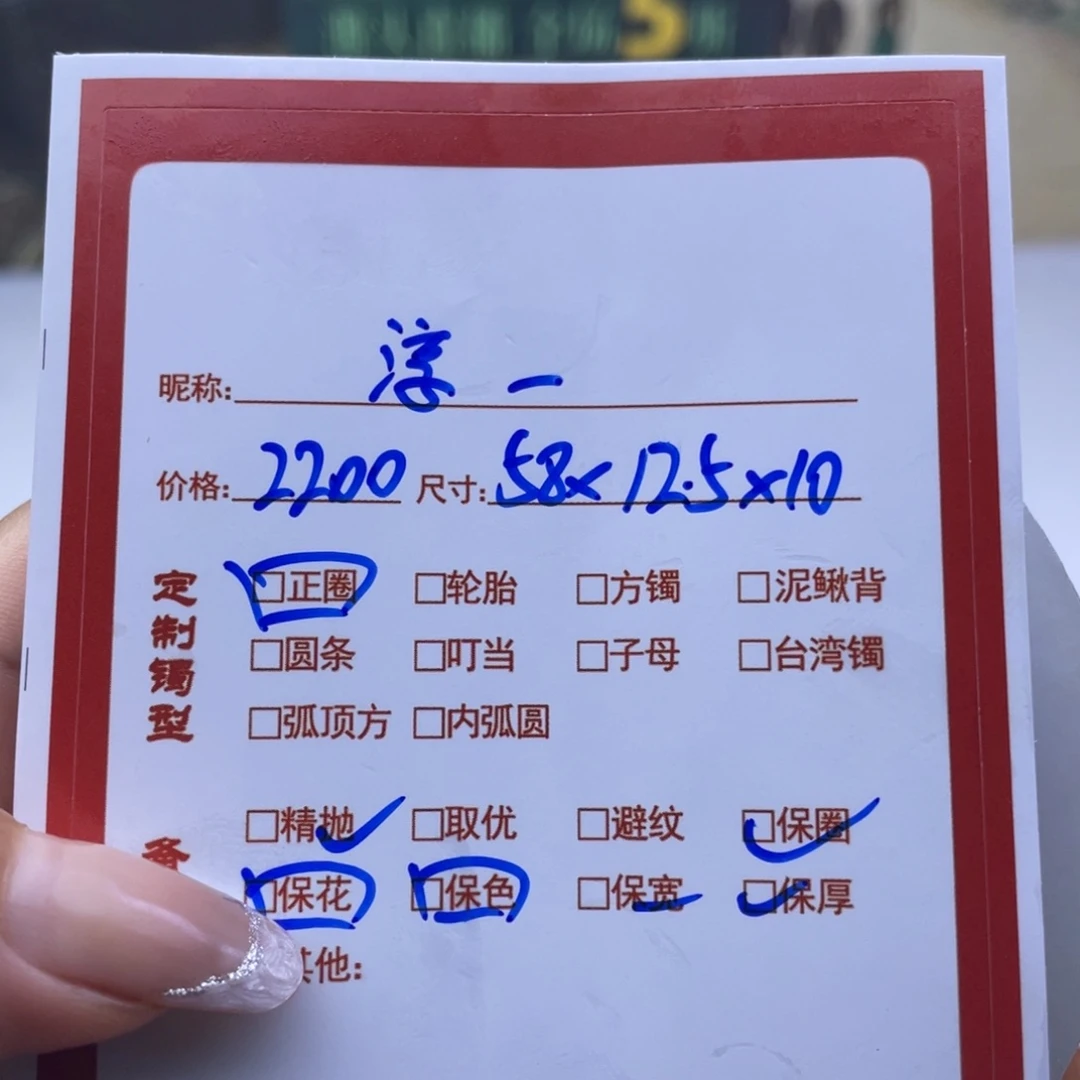 昵称: 淳一
价格: 2200 尺寸: 58×12.5×10
定制镯型
□正圈 □轮胎 □方镯 □泥鳅背
□圆条 □叮当 □子母 □台湾镯
□弧顶方 □内弧圆
□精抛 □取优 □避纹 □保圈
□保花 □保色 □保宽 □保厚
其他: